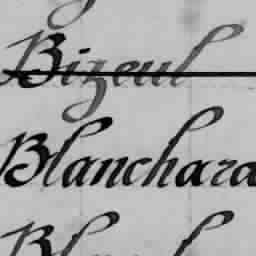 Bizeul
Blanchard